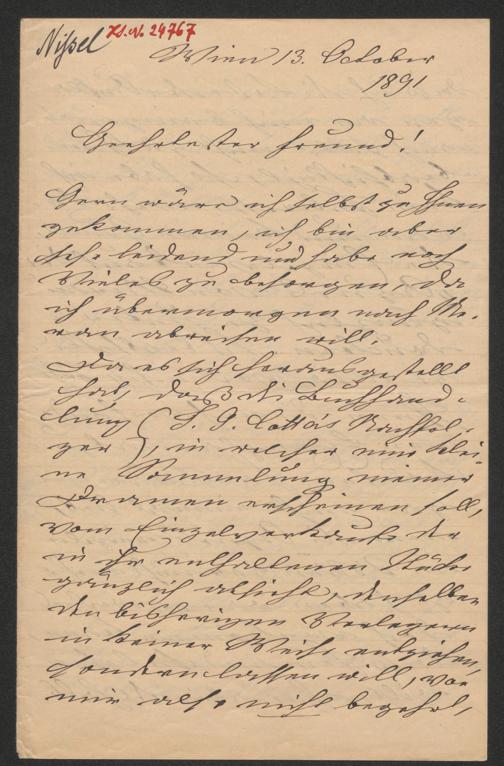 Nissel
Hs. N. 24767
Wien 13. October
1891
Geehrtester Freund!
Gern wäre ich selbst zu Ihnen
gekommen, ich bin aber
sehr leidend und habe noch
Vieles zu besorgen, da
ich übermorgen nach Me-
ran abreisen will.
Da es sich herausgestellt
hat, daß die Buchhand-
lung (J. G. Cotta's Nachfol-
ger), in welcher eine
Sammlung meiner
Dramen erscheinen soll,
vom Einzelverkaufe der
in ihr enthaltenen Stücke
gänzlich absieht, denselben
den bisherigen Verlegern
in keiner Weise entziehen,
sondern lassen will, von
mir also nicht begehrt,